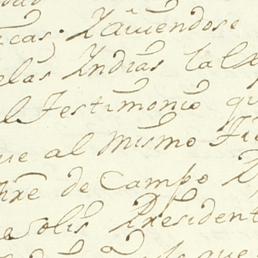 icas; Zaviendose
elas Indias la Ex
el Testimonio qu
ue al mismo
tre de Campo D
solis President